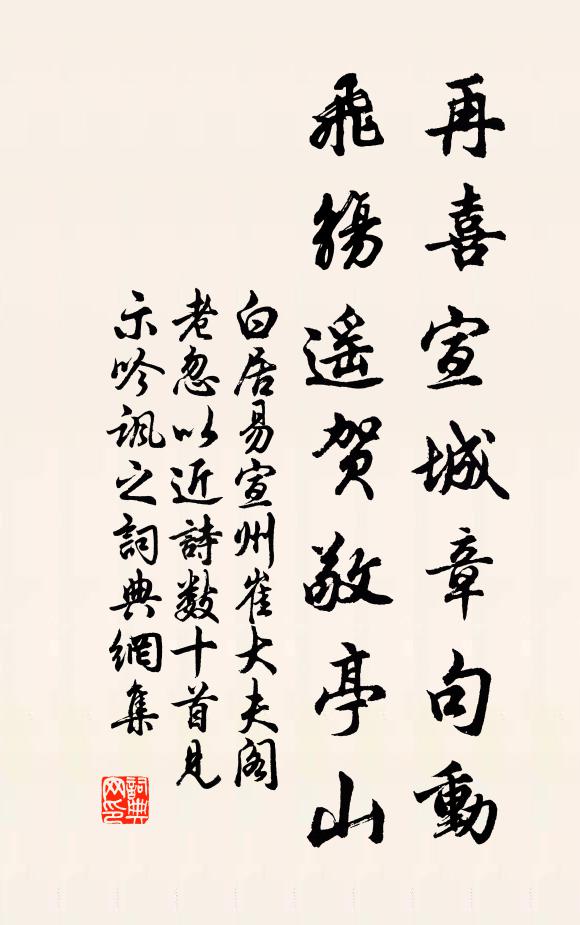 再喜宣城章句動
飛觴遥賀敬亭山
白居易宣州崔大夫閣
老忽以近詩数十首見
示吟諷之詞典網集
詞典网印